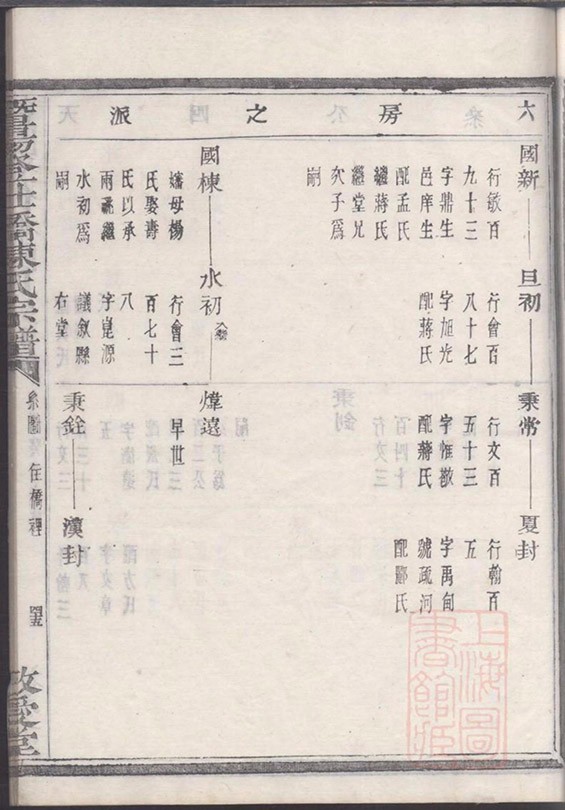 六房之派
國新
行敏百
九十三
字鼎生
邑庠生
配孟氏
繼蔣氏
繼堂兄
次子為
嗣
旦初
行會百
八十七
字旭光
配蔣氏
秉常
行文百
五十三
字惟敬
配蔣氏
夏封
行翰百
五
字禹甸
號疏河
配酈氏
國棟
嬸母楊
氏娶壽
氏以承
兩祧繼
水初為
嗣
水初
行會三
百七十
八
字崑源
議敘縣
右堂
煒遠
早世
秉銓
漢封
暨陽
橋陳氏宗譜
系圖
住橋裡
上海圖書館藏